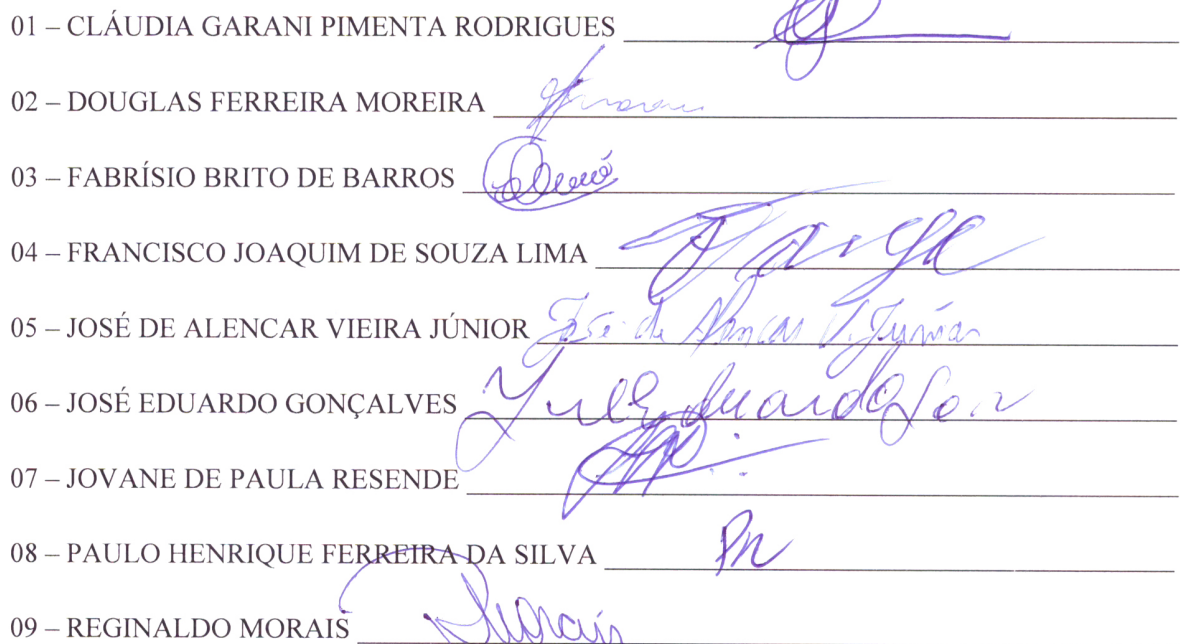 01 – CLÁUDIA GARANI PIMENTA RODRIGUES
02 – DOUGLAS FERREIRA MOREIRA
03 – FABRÍSIO BRITO DE BARROS
04 – FRANCISCO JOAQUIM DE SOUZA LIMA
05 – JOSÉ DE ALENCAR VIEIRA JÚNIOR José de Alencar V. Júnior
06 – JOSÉ EDUARDO GONÇALVES
07 – JOVANE DE PAULA RESENDE
08 – PAULO HENRIQUE FERREIRA DA SILVA
09 – REGINALDO MORAIS